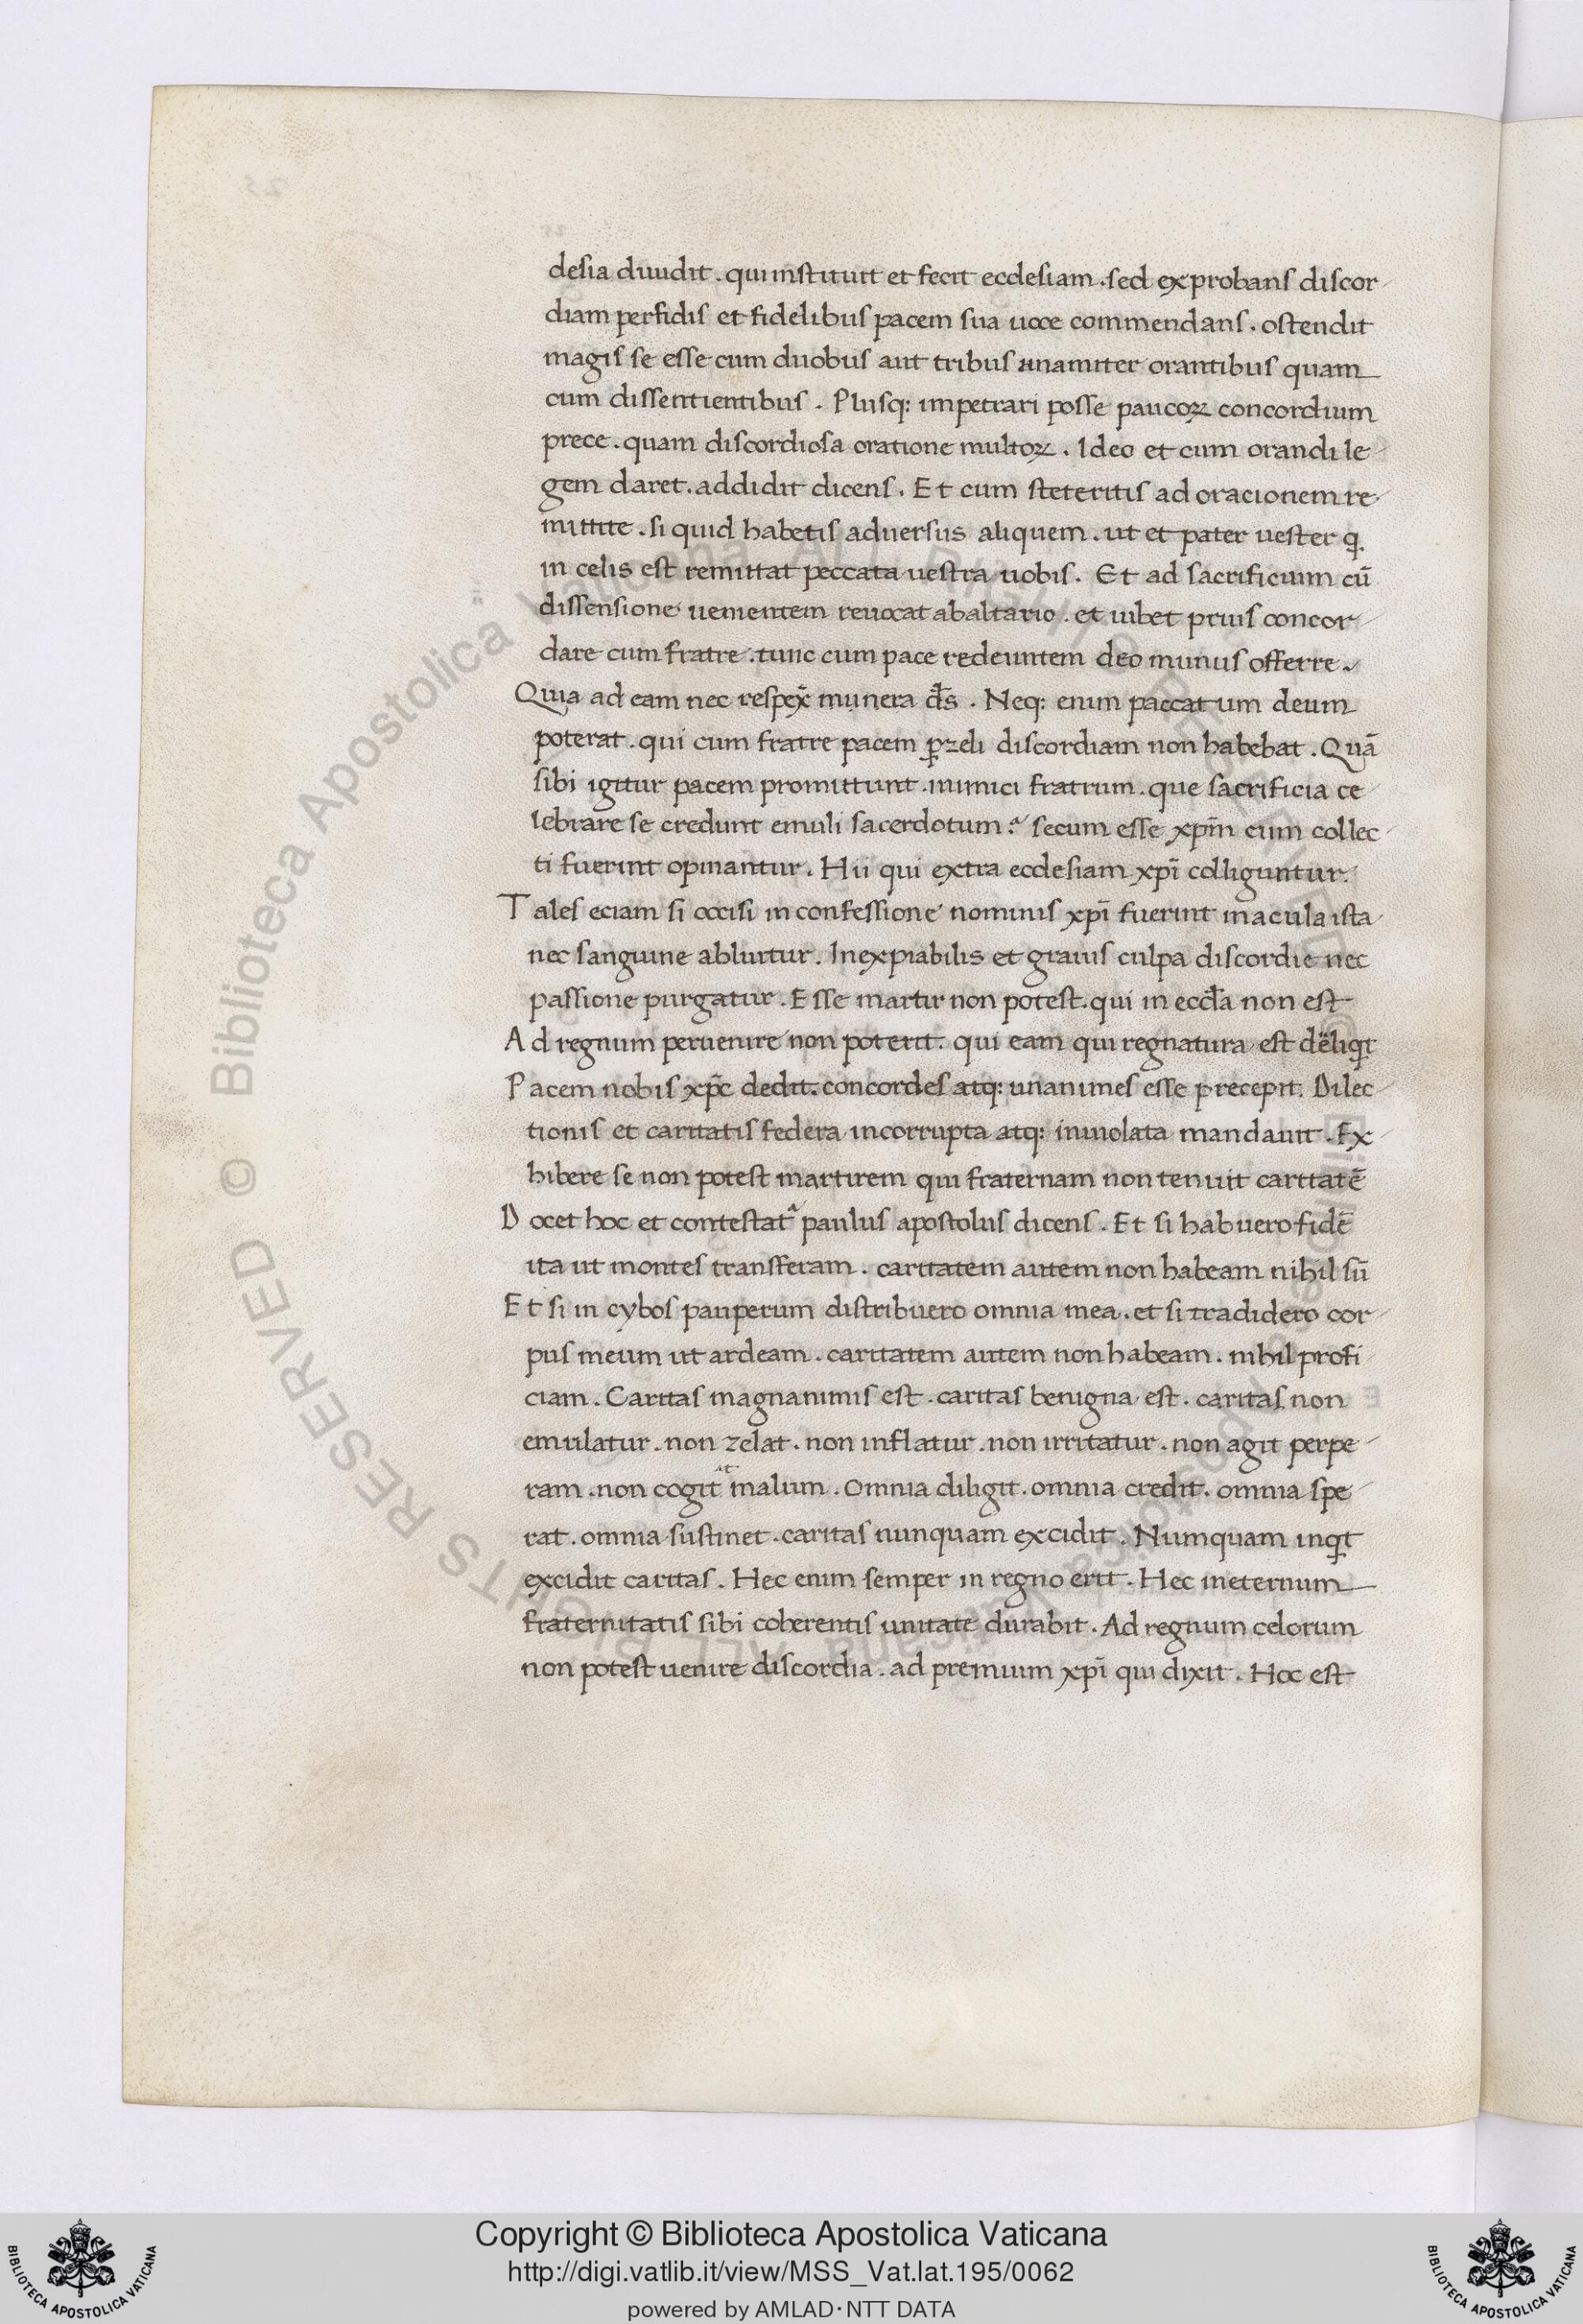 clesia diuidit . qui instituit et fecit ecclesiam . sed exprobans discor
diam perfidis et fidelibus pacem sua uoce commendans . ostendit
magis se esse cum duobus aut tribus unamiter orantibus quam
cum dissentientibus . Plusq: impetrari posse paucoꝝ concordium
prece . quam discordiosa oratione multoꝝ . Ideo et cum orandi le
gem daret . addidit dicens . Et cum steteritis ad oracionem re
mittite . si quid habetis aduersus aliquem . ut et pater uester q
in celis est remittat peccata uestra uobis . Et ad sacrificium cū
dissensione uenientem reuocat ab altario . et iubet prius concor
dare cum fratre . tunc cum pace redeuntem deo munus offerre .
Quia ad eam nec respex̄ munera d̄s . Neq: enim paccatum deum
poterat . qui cum fratre pacem ꝑ zeli discordiam non habebat . Quā
sibi igitur pacem promittunt . inimici fratrum . que sacrificia ce
lebrare se credunt emuli sacerdotum ? secum esse xp̄m cum collec
ti fuerint opinantur . Hii qui extra ecclesiam xp̄i colliguntur .
Tales eciam si occisi in confessione nominis xp̄i fuerint macula ista
nec sanguine abluitur . Inexpiabilis et grauis culpa discordie nec
passione purgatur . Esse martir non potest . qui in eccl̄a non est
Ad regnum peruenire non poterit . qui eam qui regnatura est deliqit
Pacem nobis xp̄c dedit . concordes atq: unanimes esse precepit . Dilec
tionis et caritatis federa incorrupta atq: inuiolata mandauit . Ex
hibere se non potest martirem qui fraternam non tenuit caritatē
Docet hoc et contestat᷑ paulus apostolus dicens . Et si habuero fidē
ita ut montes transferam . caritatem autem non habeam nihil sū
Et si in cybos pauperum distribuero omnia mea . et si tradidero cor
pus meum ut ardeam . caritatem autem non habeam . nihil profi
ciam . Caritas magnanimis est . caritas benigna est . caritas non
emulatur . non zelat . non inflatur . non irritatur . non agit perpe
ram . non cogit at malum . Omnia diligit . omnia credit . omnia spe
rat . omnia sustinet . caritas nunquam excidit . Numquam inqit
excidit caritas . Hec enim semper in regno erit . Hec in eternum
fraternitatis sibi coherentis unitate durabit . Ad regnum celorum
non potest uenire discordia . ad premium xp̄i qui dixit . Hoc est
Copyright © Biblioteca Apostolica Vaticana
http://digi.vatlib.it/view/MSS_Vat.lat.195/0062
powered by AMLAD·NTT DATA
BIBLIOTECA APOSTOLICA VATICANA
BIBLIOTECA APOSTOLICA VATICANA